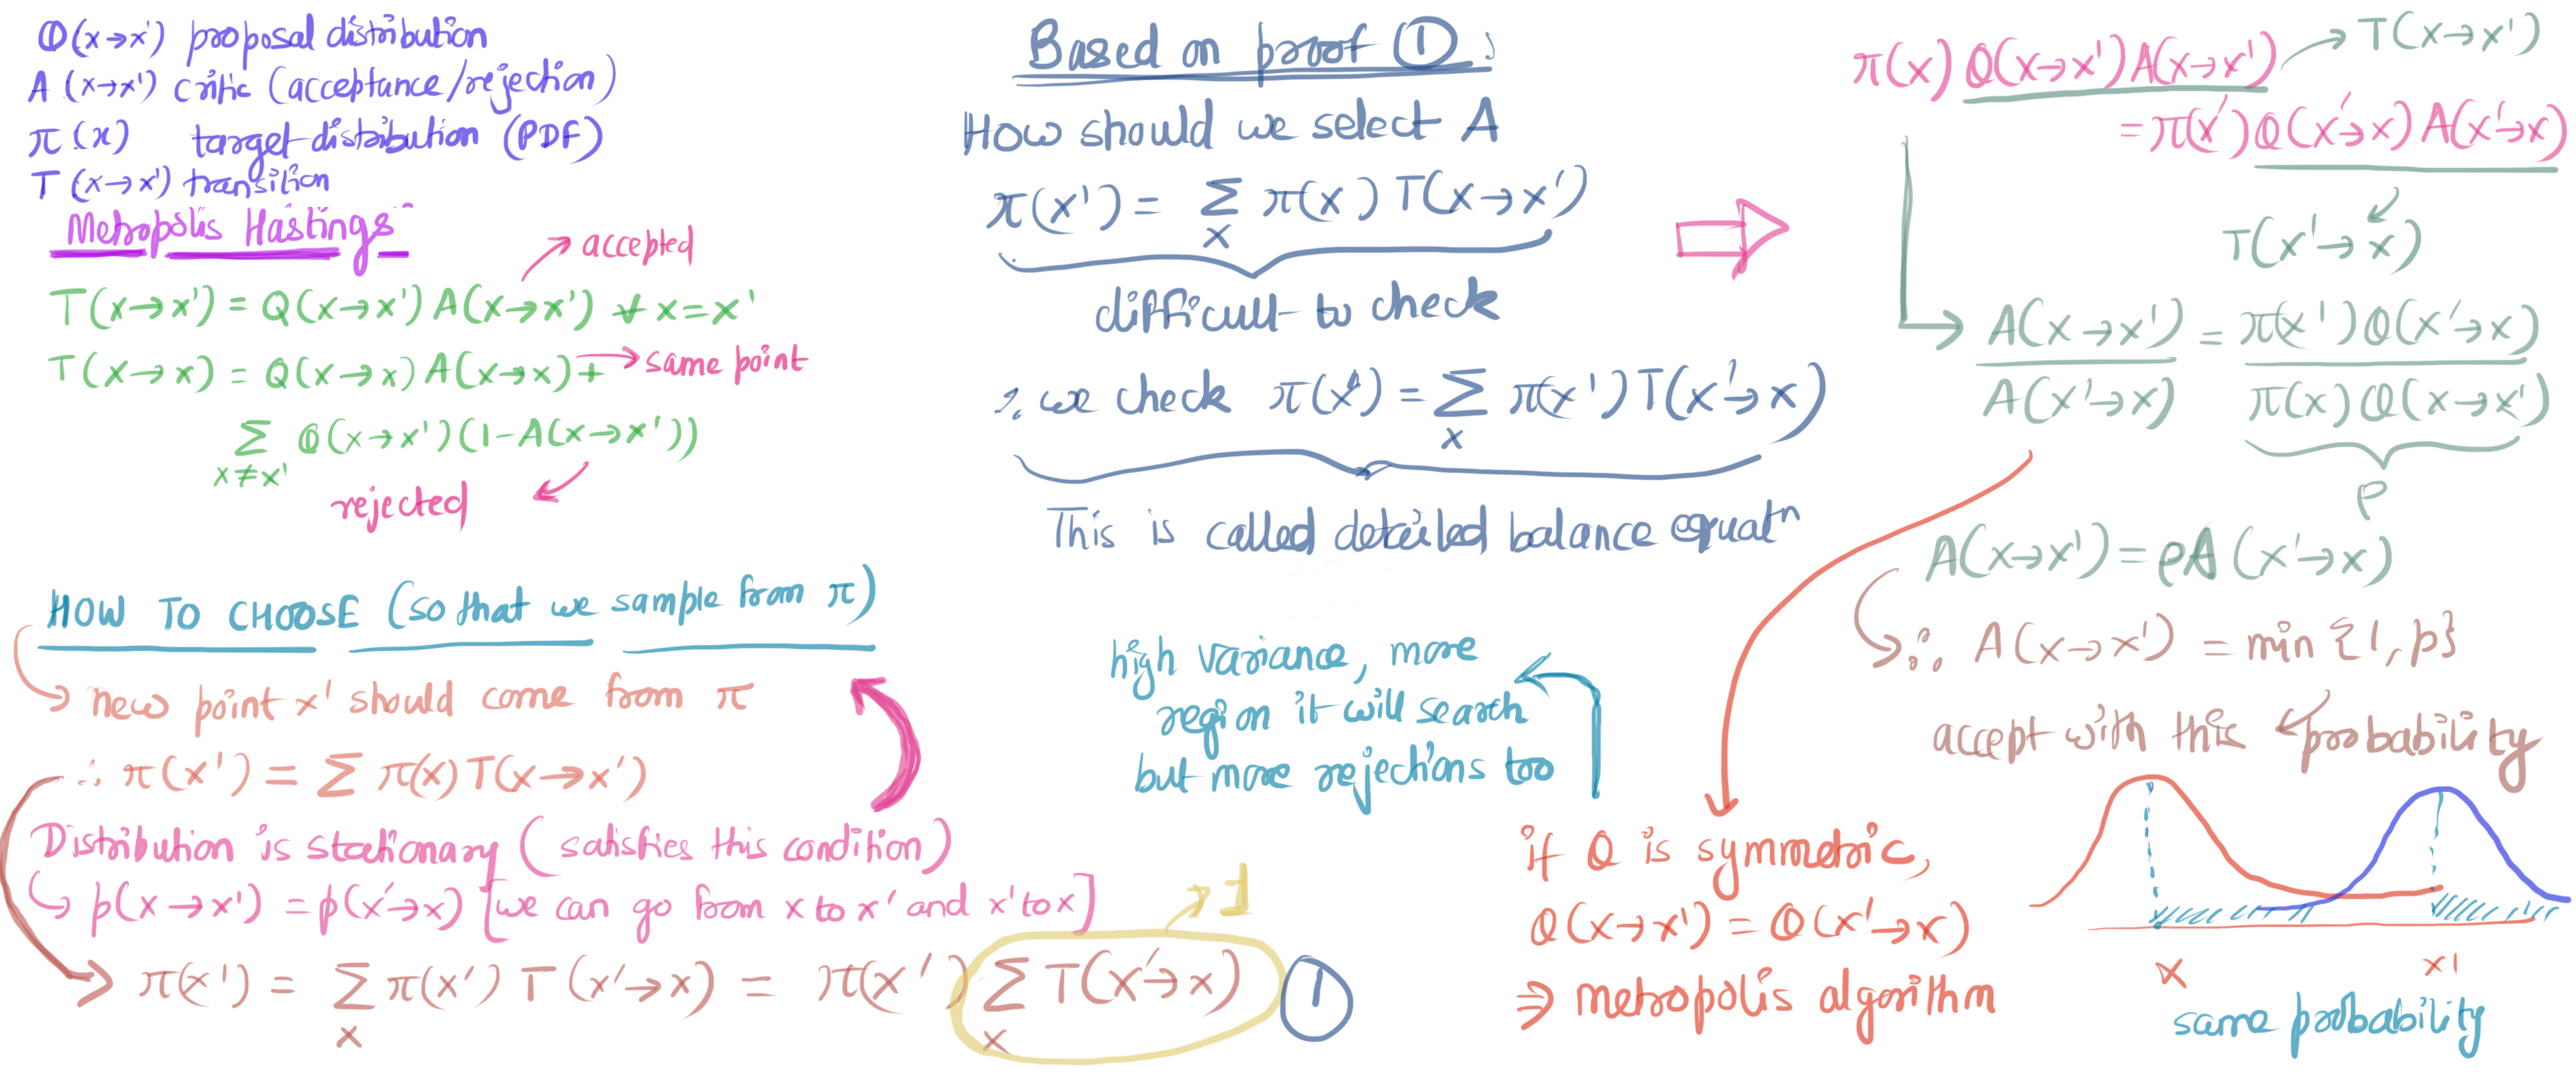 Q(x→x') proposal distribution
A (x→x') critic (acceptance/rejection)
π(x) target distribution (PDF)
T (x→x') transition
Metropolis Hastings
accepted
T(x→x') = Q(x→x') A(x→x') ∀ x=x'
T(x→x) = Q(x→x) A(x→x)+
same point
Σ Q(x→x')(1-A(x→x'))
x≠x'
rejected
HOW TO CHOOSE (so that we sample from π)
new point x' should come from π
∴ π(x') = Σ π(x) T(x→x')
Distribution is stationary (satisfies this condition)
p(x→x') = p(x'→x) [we can go from x to x' and x' to x]
π(x') = Σ π(x') T(x'→x) = π(x') Σ T(x'→x)
x x
1
①
Based on proof ① :
How should we select A
π(x') = Σ π(x) T(x→x')
x
difficult to check
∴ we check π(x') = Σ π(x') T(x'→x)
x
This is called detailed balance equatⁿ
high variance, more
region it will search
but more rejections too
π(x) Q(x→x') A(x→x')
T(x→x')
= π(x') Q(x'→x) A(x'→x)
T(x'→x)
A(x→x') = π(x') Q(x'→x)
A(x'→x) π(x) Q(x→x')
ρ
A(x→x') = ρA (x'→x)
∴ A(x→x') = min {1, ρ}
accept with this probability
if Q is symmetric,
Q(x→x') = Q(x'→x)
⇒ metropolis algorithm
x x'
same probability